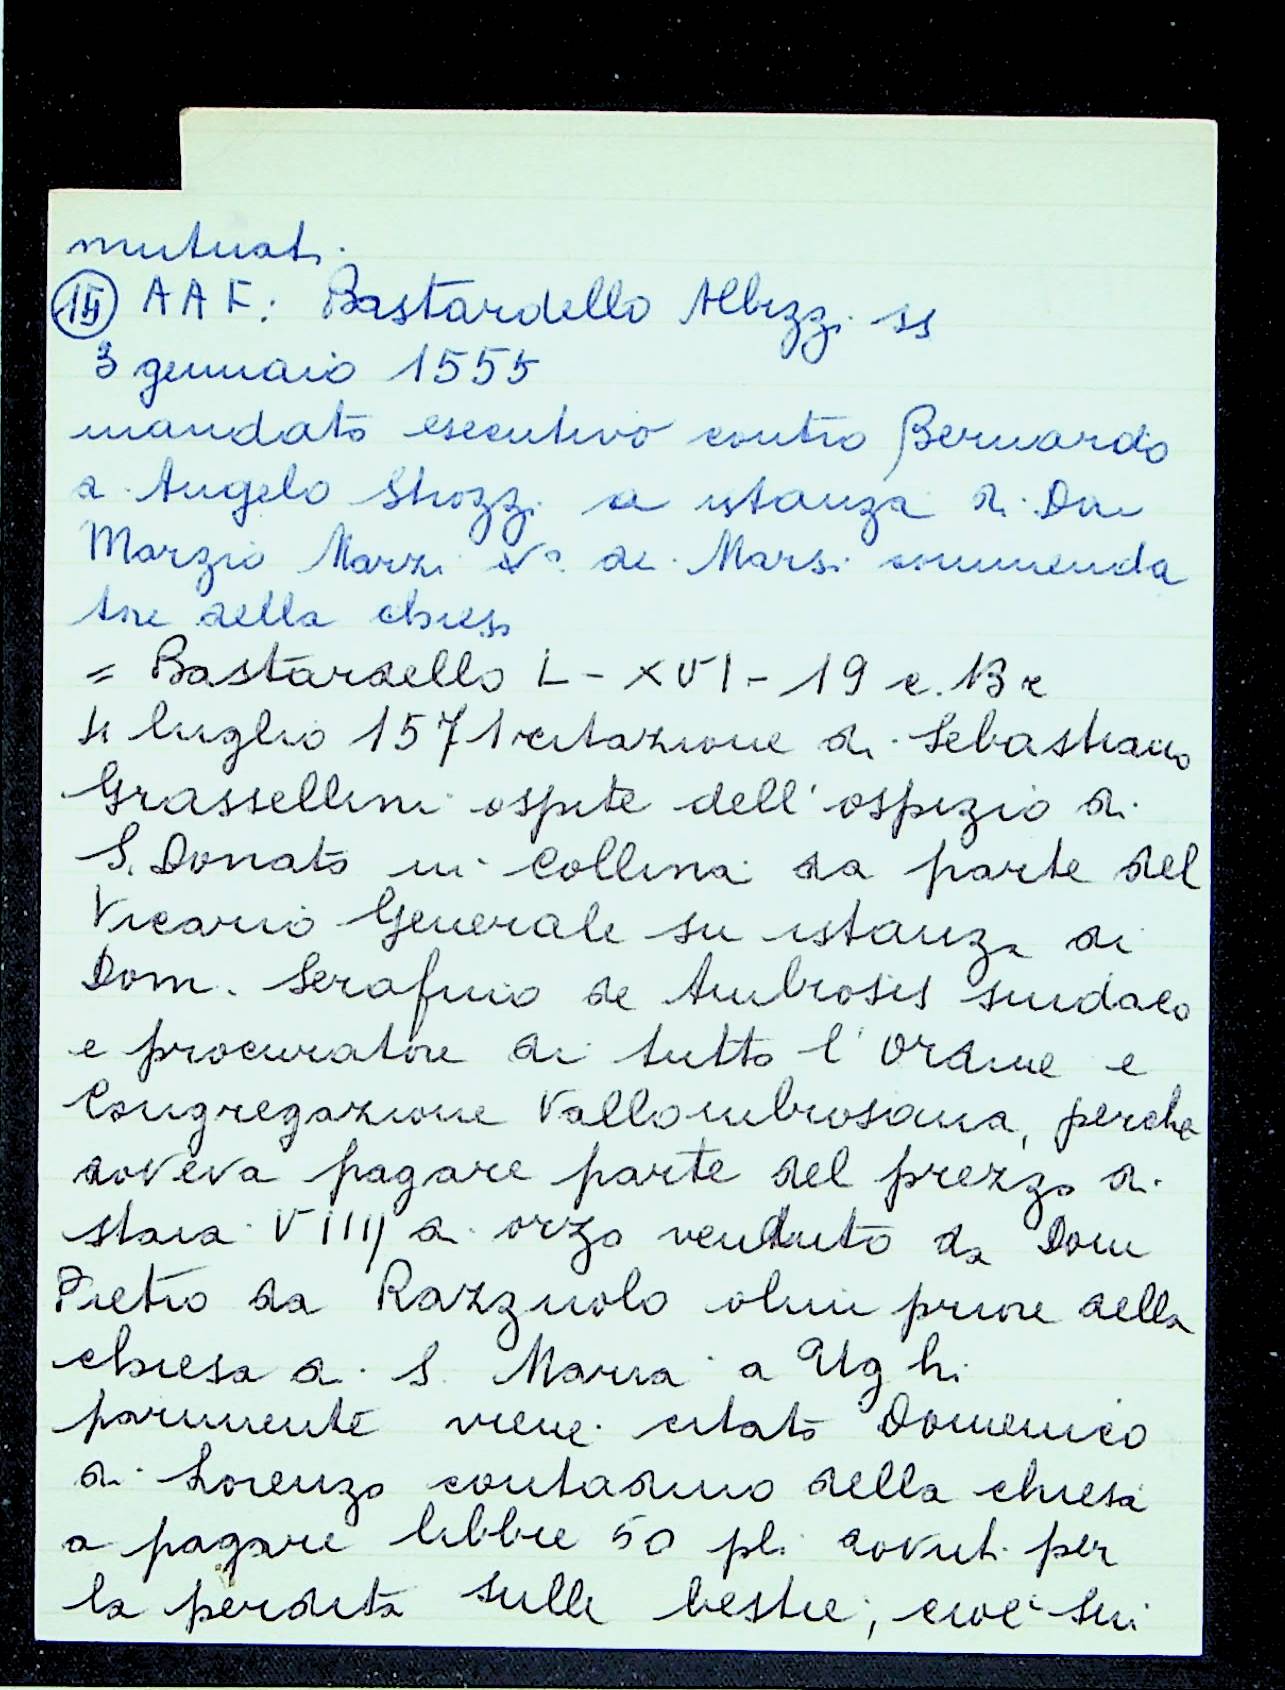 mutuati.
AAF: Bastardello Albizzi ss
3 gennaio 1555
mandato esecutivo contro Bernardo
di Angelo Strozzi a istanza di Don
Marzio Marzi de Marsi commenda
tore della chiesa
= Bastardello L - XVI - 19 c. 13 r
luglio 1571 citazione di Sebastiano
Grassellini ospite dell'ospizio di
S. Donato in Collina da parte del
Vicario Generale su istanza di
Dom. Serafino de Ambrosis sindaco
e procuratore di tutto l'Ordine e
Congregazione Vallombrosana, perche
doveva pagare parte del prezzo di
staia VIIIJ di orzo venduto da Dom
Pietro da Razzuolo olim priore della
chiesa di S. Maria a Ughi
parimente viene citato Domenico
di Lorenzo contadino della chiesa
a pagare libbre 50 pli dovuti per
la perdita sulle bestie, cioè sui